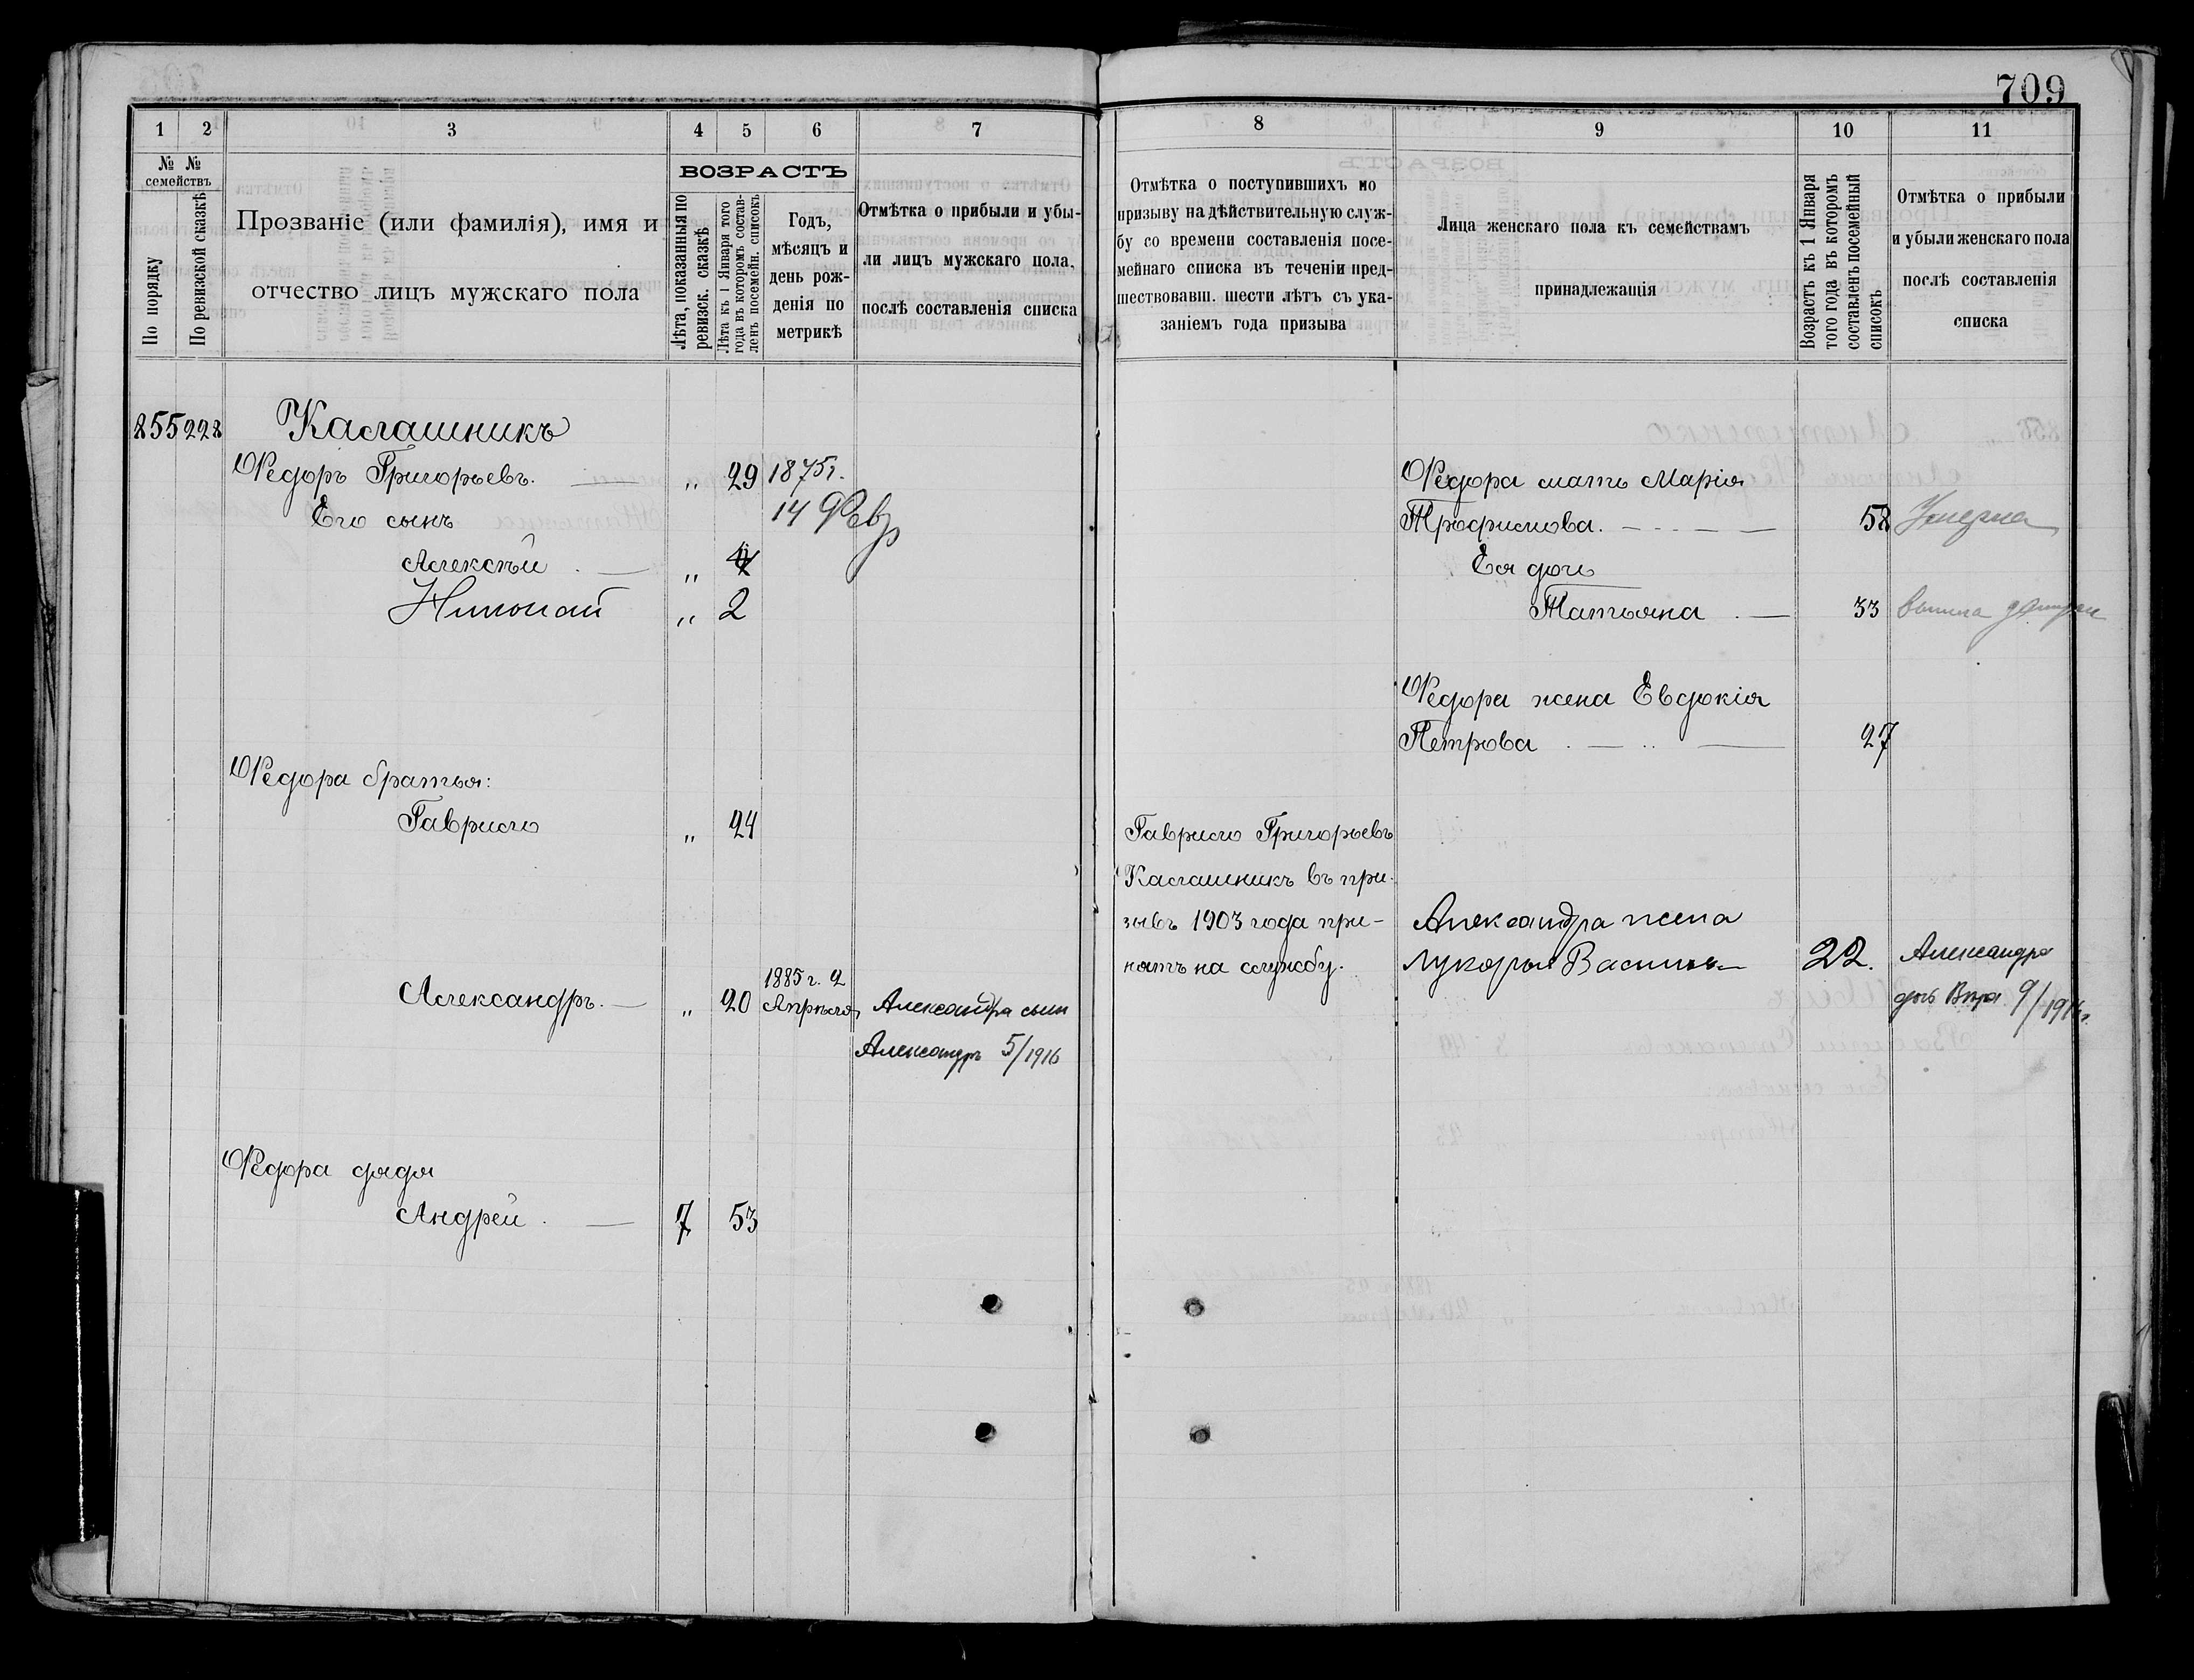 709
1 2 3 4 5 6 7
№ № семействъ
По порядку
По ревизской сказкѣ
Прозваніе (или фамилія), имя и
отчество лицъ мужскаго пола
ВОЗРАСТЪ
Лѣта, показанныя по
ревизск. сказкѣ
Лѣта къ 1 Января того
года въ которомъ состав-
ленъ посемейн. списокъ
Годъ,
мѣсяцъ и
день рож-
денія по
метрикѣ
Отмѣтка о прибыли и убы-
ли лицъ мужскаго пола,
послѣ составленія списка
855 228 Калашникъ
Ѳедоръ Григорьевъ. „ 29 1875 г.
14 Февр
Его сынъ
Алексѣй „ 4
Николай „ 2
Ѳедора братья:
Гаврило „ 24
Александръ. „ 20 1885 г. 2
Апрѣля
Александра сын
Александръ 5/1916
Ѳедора дядя
Андрей 7 53
8 9 10 11
Отмѣтка о поступившихъ по
призыву на дѣйствительную служ-
бу со времени составленія посе-
мейнаго списка въ теченіи пред-
шествовавш. шести лѣтъ съ ука-
заніемъ года призыва
Лица женскаго пола къ семействамъ
принадлежащія
Возрастъ къ 1 Января
того года въ которомъ
составленъ посемейный
списокъ
Отмѣтка о прибыли
и убыли женскаго пола
послѣ составленія
списка
Ѳедора мать Марія
Трофимова. 58 Умерла
Ея дочь
Татьяна 33 вышла замуж
Ѳедора жена Евдокія
Петрова 27
Гаврило Григорьевъ
Калашникъ въ при-
зывъ 1903 года при-
нятъ на службу.
Александра жена
Лукерья Васильев 22.
Александра
дочь Вѣра 9/191